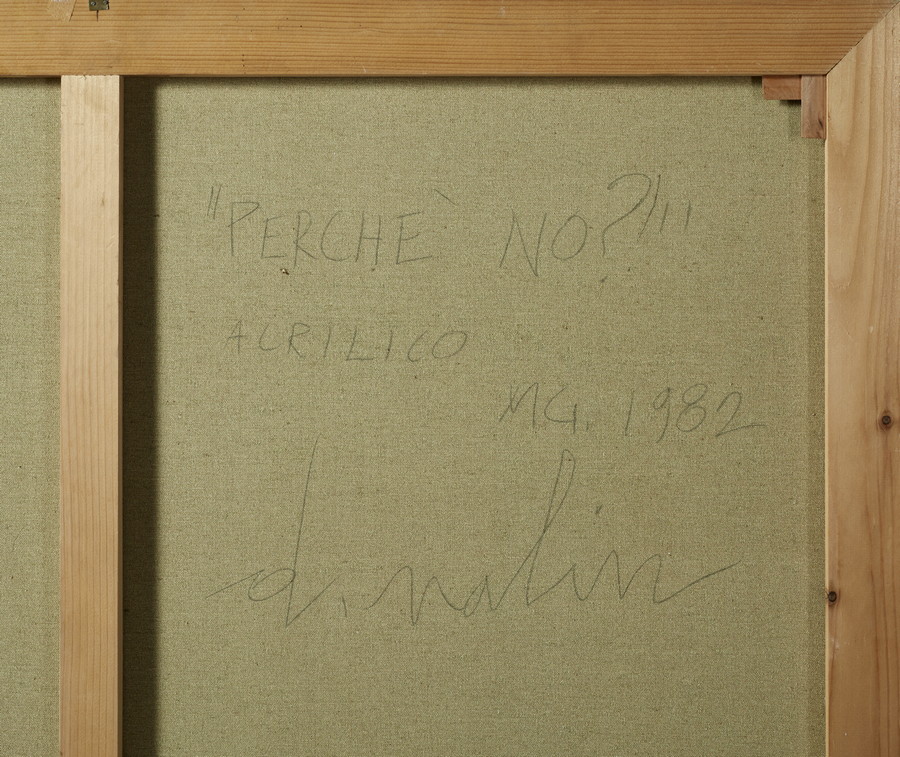 "PERCHE` NO?!"
ACRILICO
MG. 1982
d. nalin